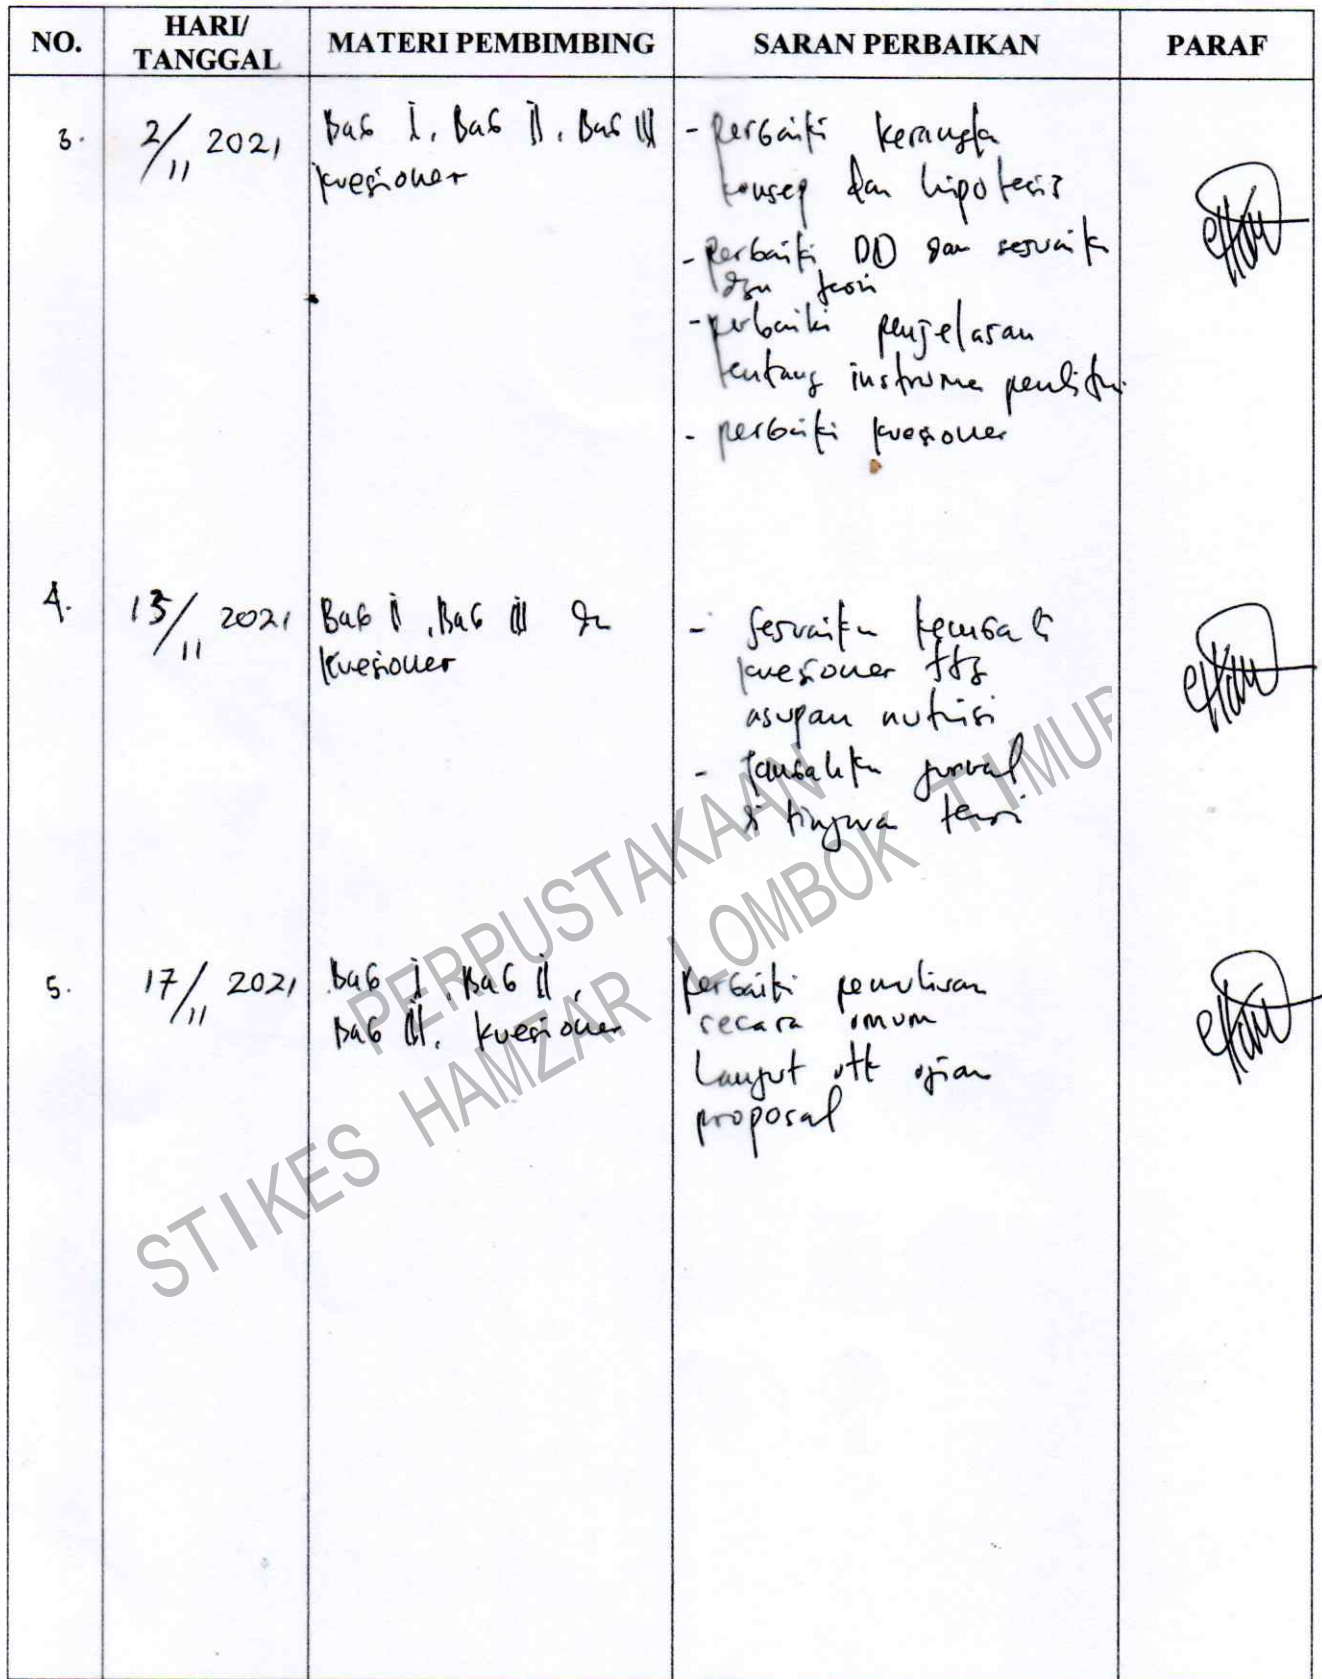 NO.
HARI/
TANGGAL
MATERI PEMBIMBING
SARAN PERBAIKAN
PARAF
3.
2/11 2021
Bab I, Bab II, Bab III
kuesioner
- perbaiki kerangka
konsep dan hipotesis
- perbaiki DO dan sesuaik
dgn teori
- perbaiki penjelasan
tentang instrume
- perbaiki kuesioner
4.
13/11 2021
Bab II, Bab III dn
kuesioner
- sesuaikn kembali
kuesioner ttg
asupan nutrisi
- tambahkn jurnal
di tinjaua teori
5.
17/11 2021
Bab I, Bab II,
Bab III, kuesioner
perbaiki penulisan
secara umum
Lanjut utk ujian
proposal
PERPUSTAKAAN
STIKES HAMZAR LOMBOK TIMUR